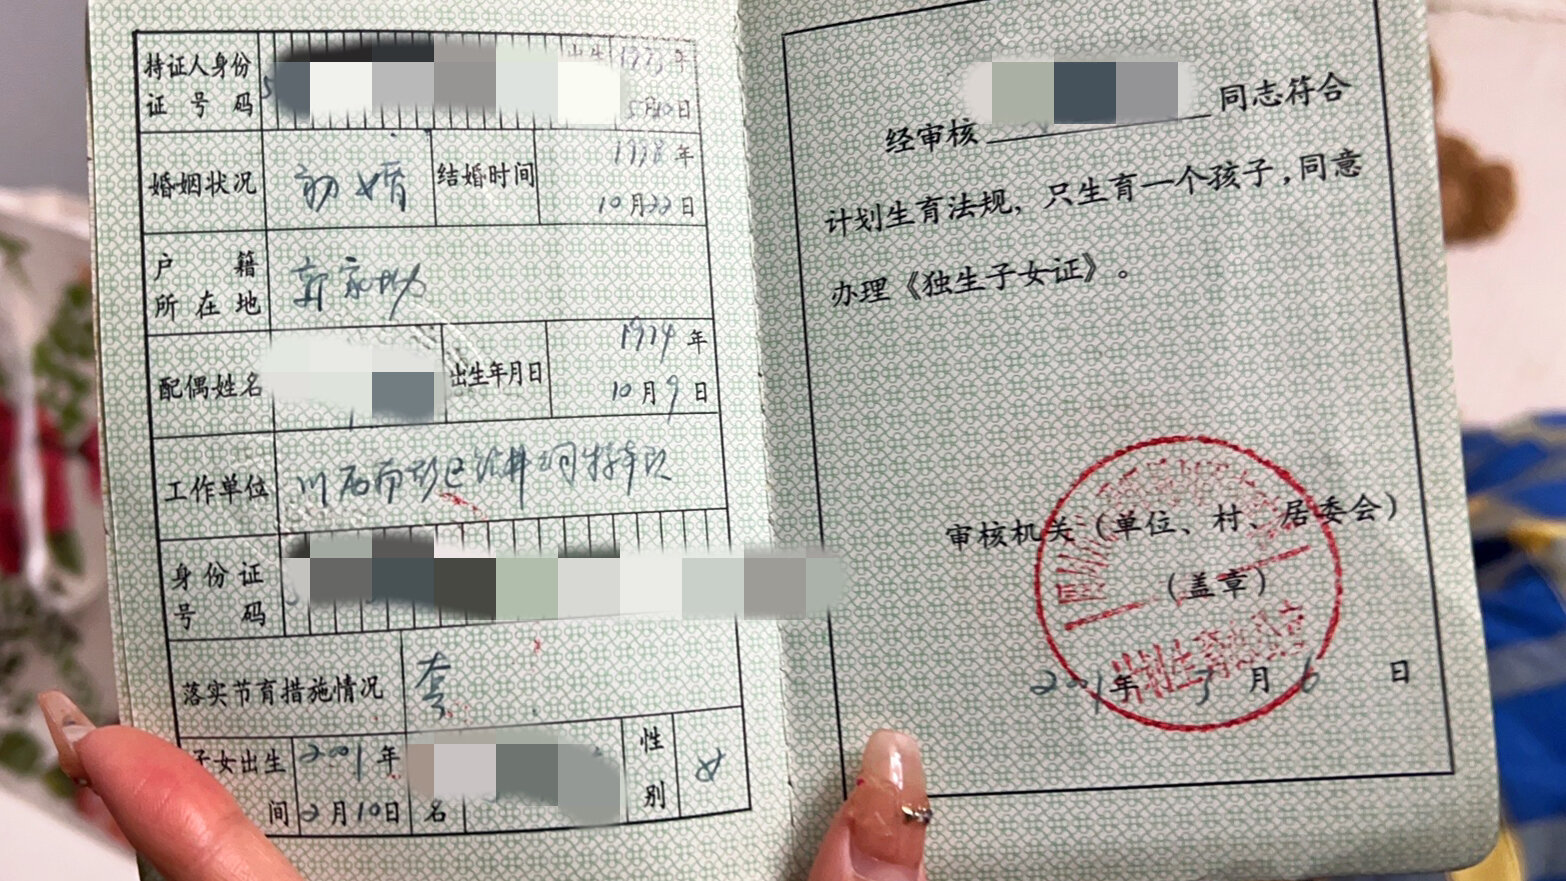 持证人身份 出生 1973年
证号码 5月10日
婚姻状况 初婚 结婚时间 1998年
10月22日
户籍
所在地 郭家坳
配偶姓名 出生年月日 1974年
10月9日
工作单位 川石南 钻井公司特车队
身份证
号码
落实节育措施情况 套
子女出生 2001年 性
间 2月10日 名 别 女
经审核 同志符合
计划生育法规，只生育一个孩子，同意
办理《独生子女证》。
审核机关（单位、村、居委会）
（盖章）
计划生育办公室
2001年3月6日